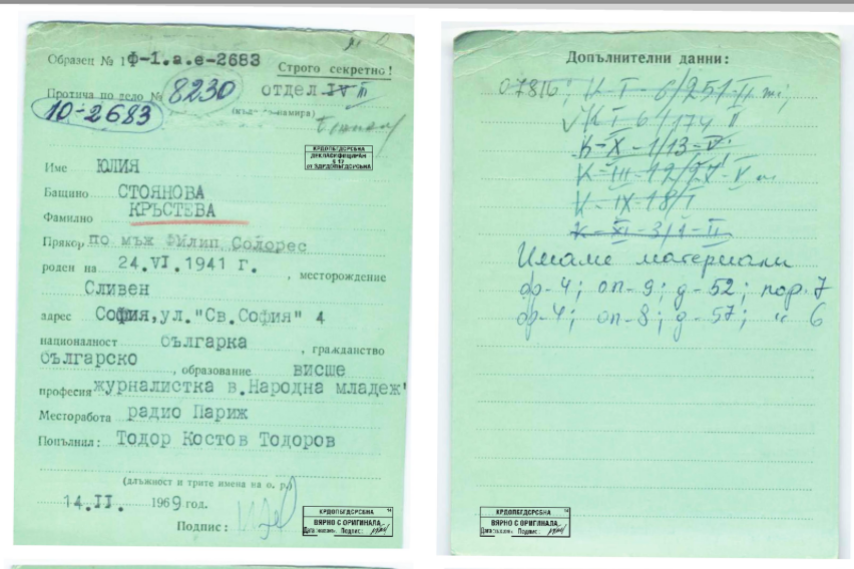 Образец № 1 Ф-1.а.е-2683
Строго секретно!
Протича по дело № 8230 отдел IV III
10-2683
КРДОПБГДСРСБНА
ДЕКЛАСИФИЦИРАН
Име ЮЛИЯ
Бащино СТОЯНОВА
Фамилно КРЪСТЕВА
Прякор по мъж Филип Солорес
роден на 24.VI.1941 Г. , месторождение
Сливен
адрес София,ул."Св.София" 4
националност българка , гражданство
българско , образование висше
професия журналистка в.Народна младеж"
Месторабота радио Париж
Попълнил: Тодор Костов Тодоров
(длъжност и трите имена на о. р.)
14.II. 1969 год.
Подпис:
КРДОПБГДСРСБНА
ВЯРНО С ОРИГИНАЛА
Подпис:
Допълнителни данни:
К-I-6/174 II
К-X-1/13-V
К-IX-18/I
К-XI-3/1-II
Имаме материали
ф-4; оп-9; д-52; пор. 7
ф-4; оп-8; д-57; " 6
КРДОПБГДСРСБНА
ВЯРНО С ОРИГИНАЛА
Подпис: